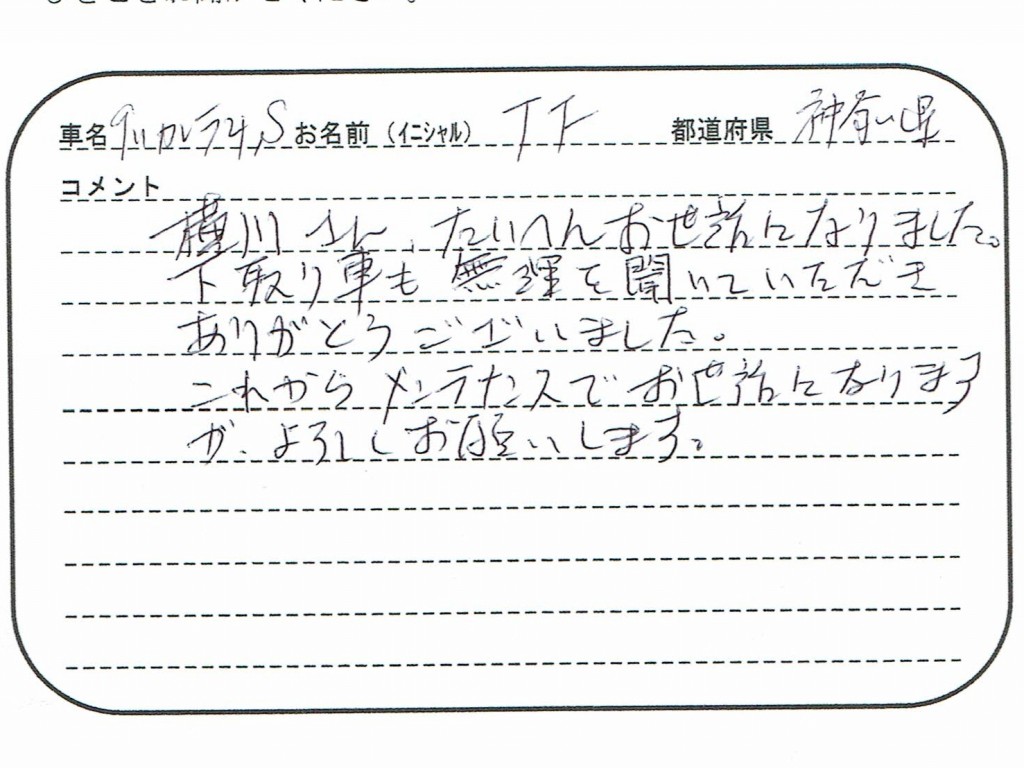 車名 911カレラ4S お名前（イニシャル） T F 都道府県 神奈川県
コメント
横川さん、たいへんお世話になりました。
下取り車も無理を聞いていただき
ありがとうございました。
これからメンテナンスでお世話になります
が、よろしくお願いします。